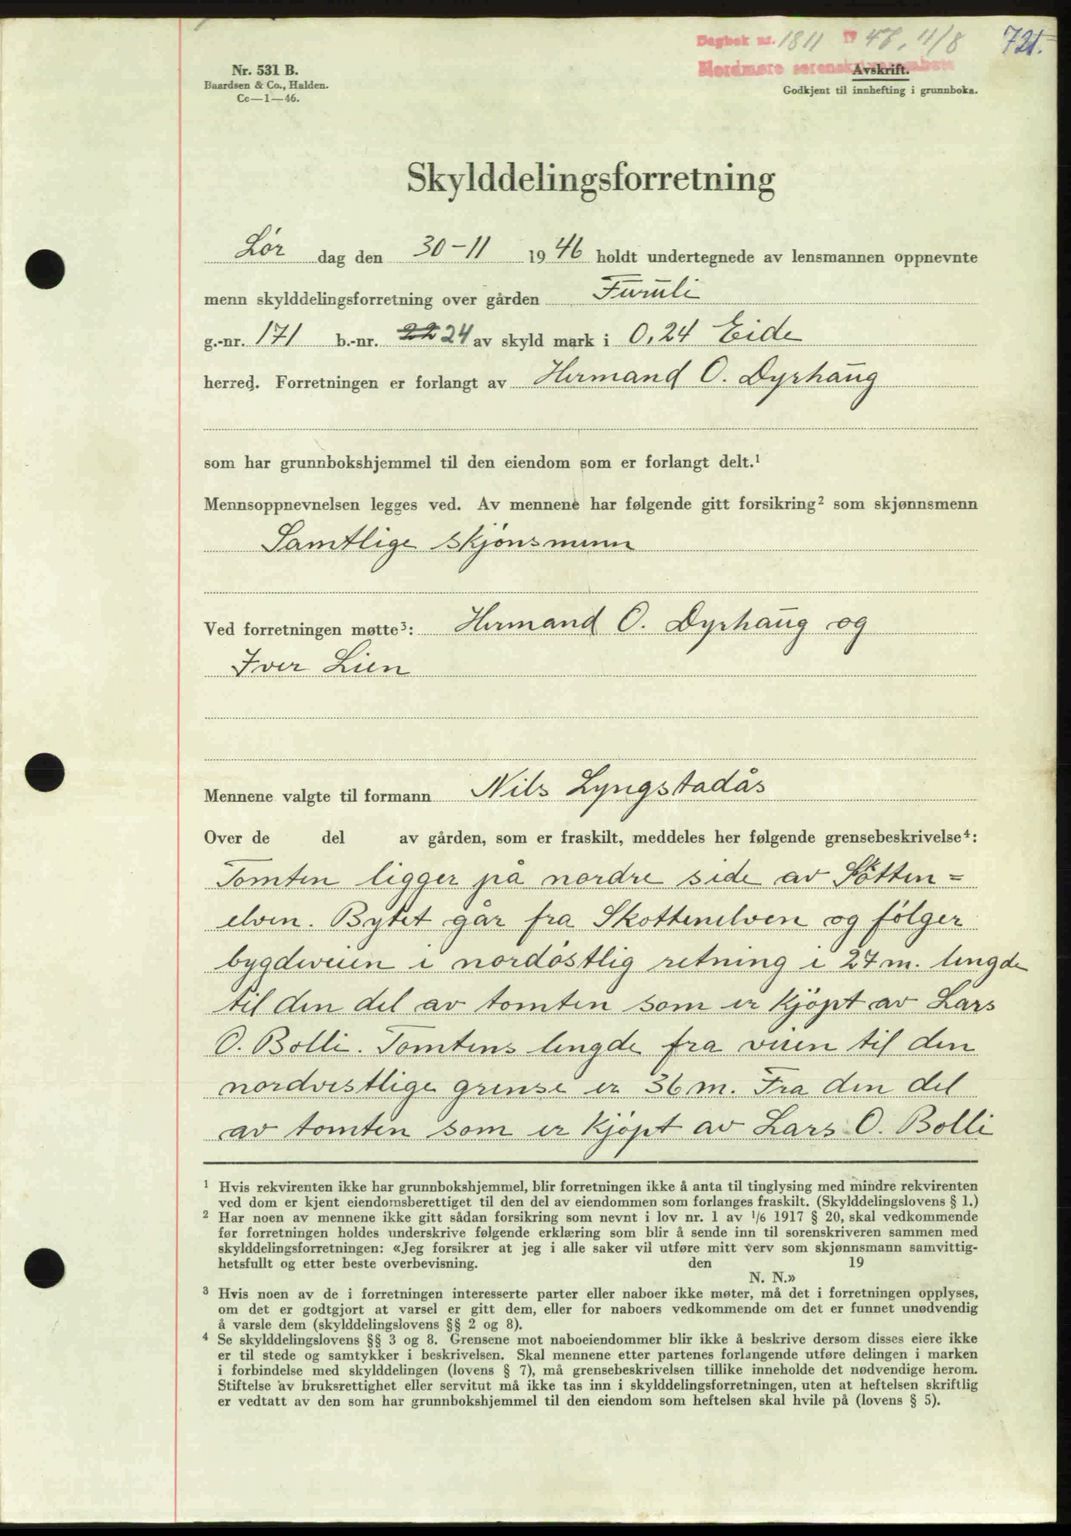 Dagbok nr. 1811 19 47, 11/8 721.
Nordmøre sorenskriverembete
Nr. 531 B.
Baardsen & Co., Halden.
Cc—1—46.
Avskrift.
Godkjent til innhefting i grunnboka.
Skylddelingsforretning
Lør dag den 30-11 1946 holdt undertegnede av lensmannen oppnevnte
menn skylddelingsforretning over gården Furuli
g.-nr. 171 b.-nr. 22 24 av skyld mark i 0,24 Eide
herred. Forretningen er forlangt av Hermand O. Dyrhaug
som har grunnbokshjemmel til den eiendom som er forlangt delt.¹
Mennsoppnevnelsen legges ved. Av mennene har følgende gitt forsikring² som skjønnsmenn
Samtlige skjønsmenn
Ved forretningen møtte³: Hermand O. Dyrhaug og
Iver Lien
Mennene valgte til formann Nils Lyngstadås
Over de del av gården, som er fraskilt, meddeles her følgende grensebeskrivelse⁴:
Tomten ligger på nordre side av Skotten=
elven. Bytet går fra Skottenelven og følger
bygdeveien i nordøstlig retning i 27 m. lengde
til den del av tomten som er kjøpt av Lars
O. Bolli. Tomtens lengde fra veien til den
nordvestlige grense er 36 m. Fra den del
av tomten som er kjøpt av Lars O. Bolli
¹ Hvis rekvirenten ikke har grunnbokshjemmel, blir forretningen ikke å anta til tinglysing med mindre rekvirenten
ved dom er kjent eiendomsberettiget til den del av eiendommen som forlanges fraskilt. (Skylddelingslovens § 1.)
² Har noen av mennene ikke gitt sådan forsikring som nevnt i lov nr. 1 av ¹/6 1917 § 20, skal vedkommende
før forretningen holdes underskrive følgende erklæring som blir å sende inn til sorenskriveren sammen med
skylddelingsforretningen: «Jeg forsikrer at jeg i alle saker vil utføre mitt verv som skjønnsmann samvittig-
hetsfullt og etter beste overbevisning. den 19
N. N.»
³ Hvis noen av de i forretningen interesserte parter eller naboer ikke møter, må det i forretningen opplyses,
om det er godtgjort at varsel er gitt dem, eller for naboers vedkommende om det er funnet unødvendig
å varsle dem (skylddelingslovens §§ 2 og 8).
⁴ Se skylddelingslovens §§ 3 og 8. Grensene mot naboeiendommer blir ikke å beskrive dersom disses eiere ikke
er til stede og samtykker i beskrivelsen. Skal mennene etter partenes forlangende utføre delingen i marken
i forbindelse med skylddelingen (lovens § 7), må grensebeskrivelsen tillike inneholde det nødvendige herom.
Stiftelse av bruksrettighet eller servitut må ikke tas inn i skylddelingsforretningen, uten at heftelsen skriftlig
er vedtatt av den som har grunnbokshjemmel til den eiendom som heftelsen skal hvile på (lovens § 5).